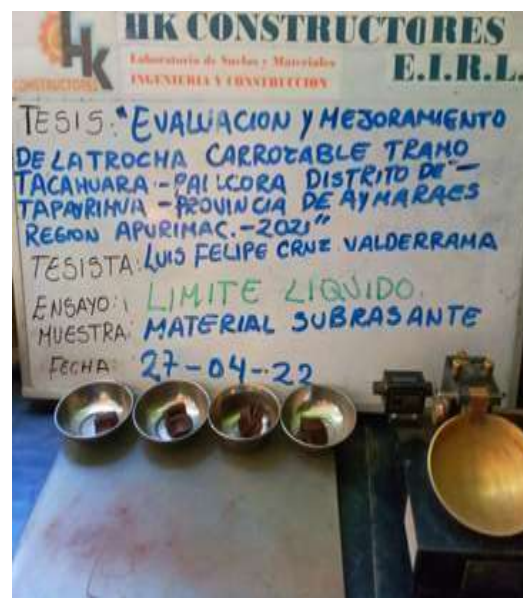 HK CONSTRUCTORES
E.I.R.L.
Laboratorio de Suelos y Materiales
INGENIERIA Y CONSTRUCCION
HK
CONSTRUCTORES
TESIS: "EVALUACION Y MEJORAMIENTO
DE LA TROCHA CARROZABLE TRAMO
TACAHUARA - PAICCORA DISTRITO DE -
TAPAYRIHUA - PROVINCIA DE AYMARAES
REGION APURIMAC. - 2021"
TESISTA: LUIS FELIPE CRUZ VALDERRAMA
ENSAYO: LIMITE LIQUIDO.
MUESTRA: MATERIAL SUBRASANTE
FECHA: 27-04-22